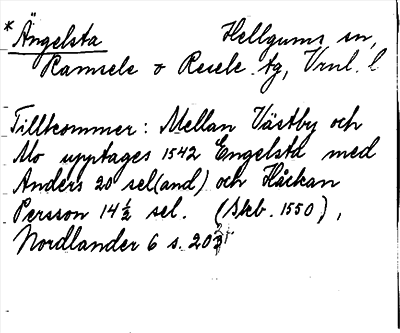 * Ängelsta Hellgums sn,
Ramsele o Resele tg, Vrnl. l
Tillkommer: Mellan Västby och
Mo upptages 1542 Engelsta med
Anders 20 sel(and) och Håckan
Persson 14½ sel. (Skb. 1550),
Nordlander 6 s. 203